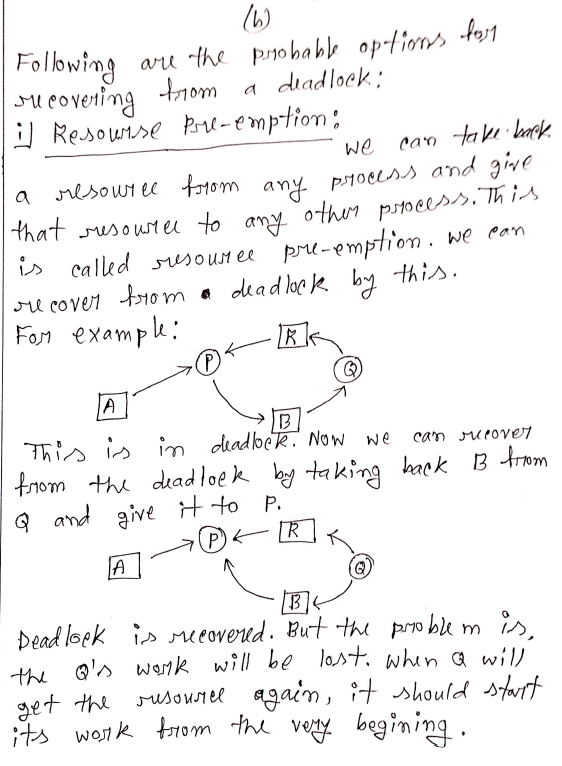 (b)
Following are the probable options for
recovering from a deadlock:
i) Resourse Pre-emption:
we can take back
a resource from any process and give
that resource to any other process. This
is called resource pre-emption. we can
recover from a deadlock by this.
For example:
R
P
Q
A
B
This is in deadlock. Now we can recover
from the deadlock by taking back B from
Q and give it to P.
R
P
A
Q
B
Deadlock is recovered. But the problem is,
the Q's work will be lost. when Q will
get the resource again, it should start
its work from the very begining.